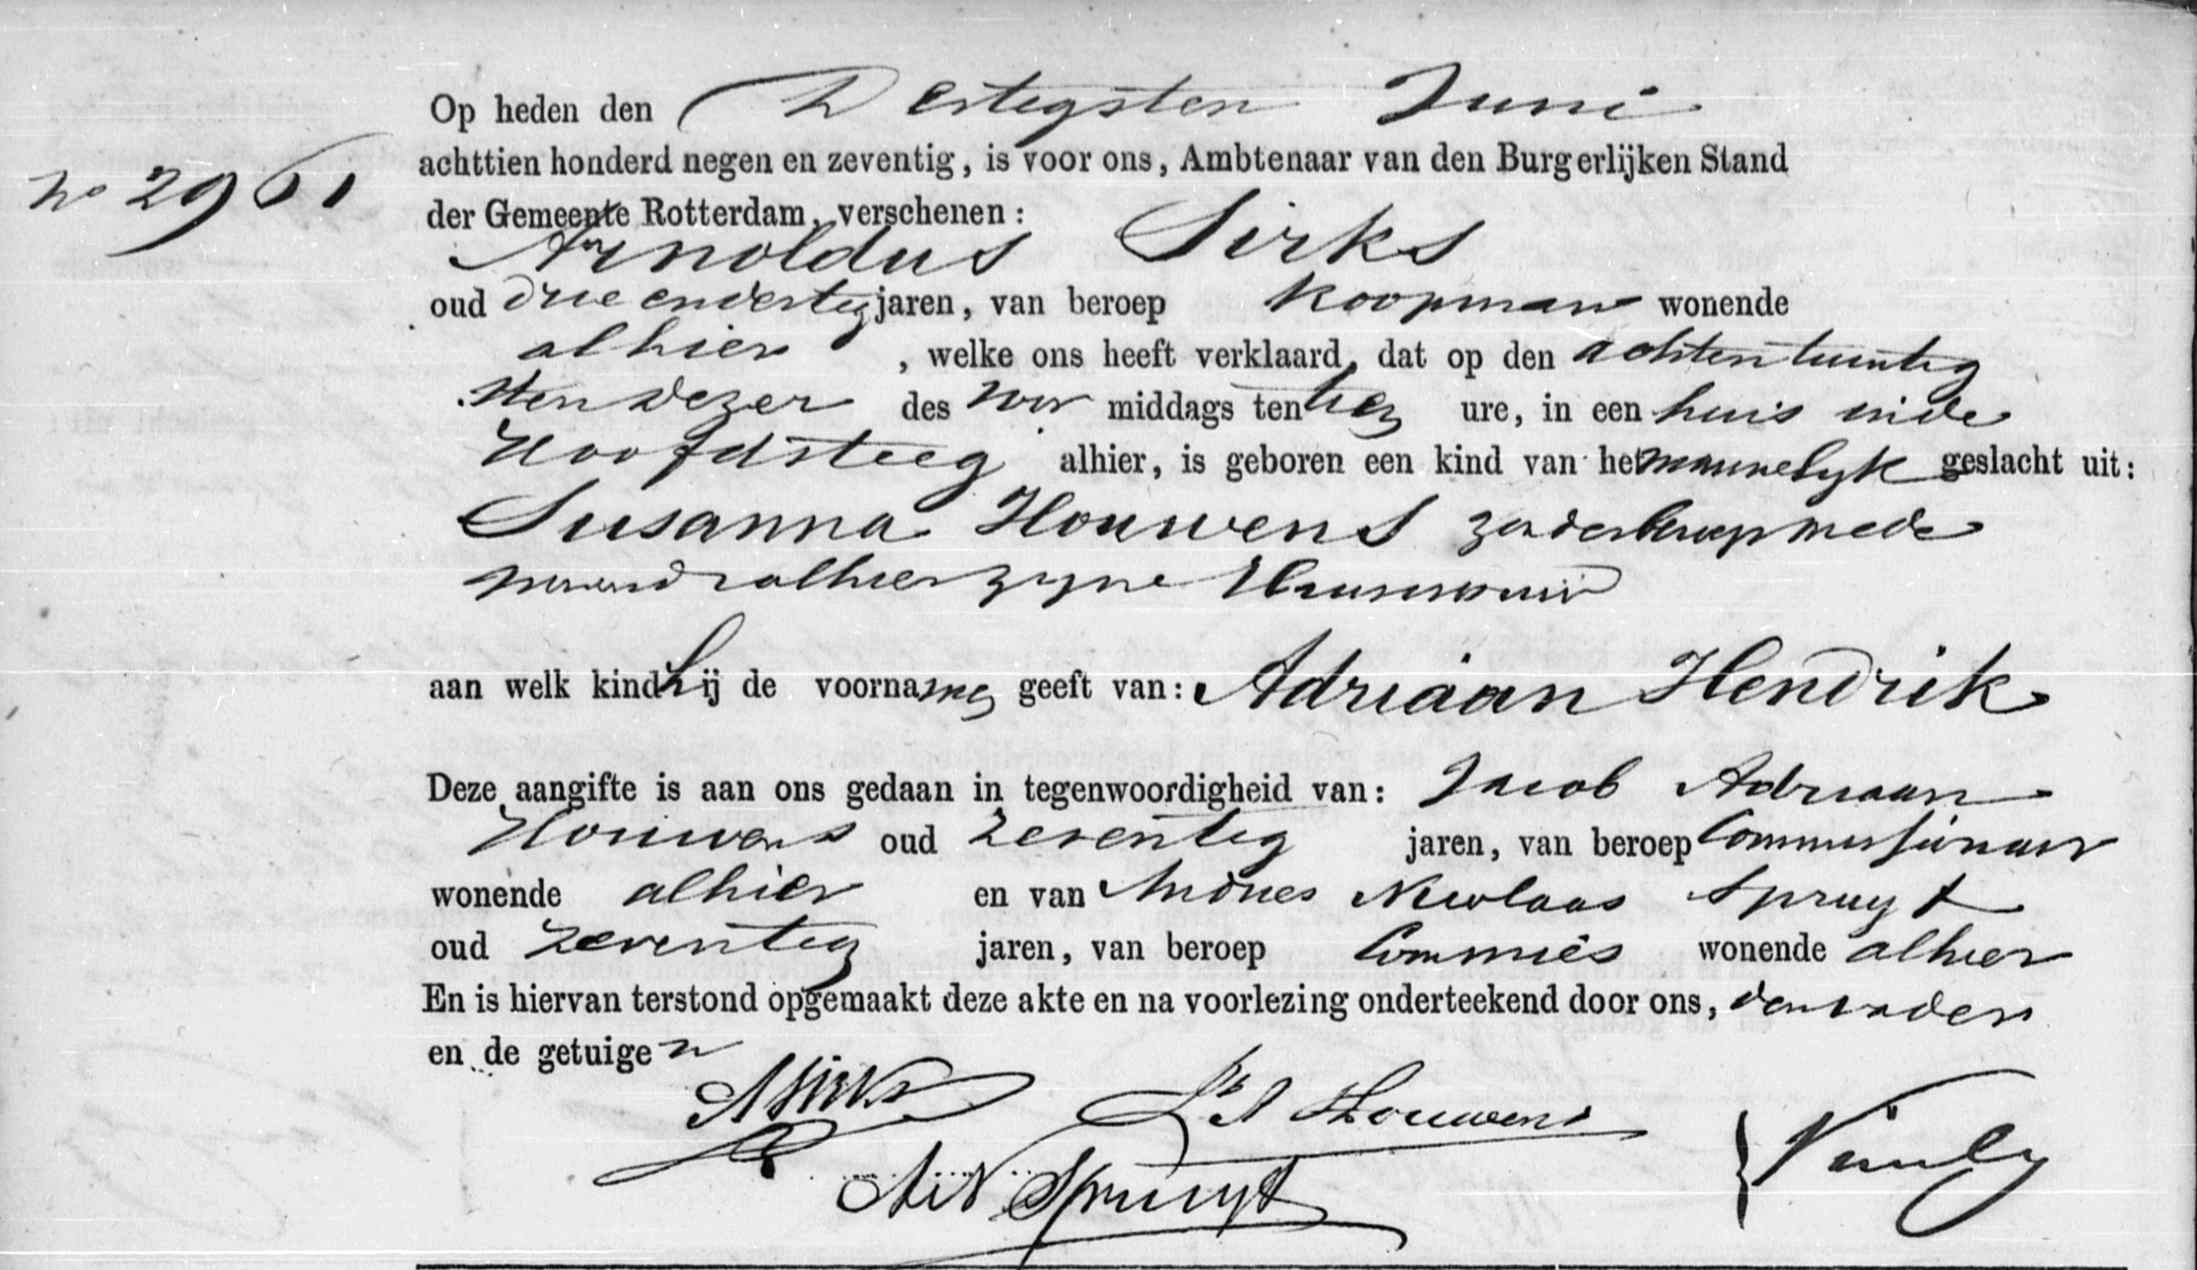 Op heden den Dertigsten Juni
achttien honderd negen en zeventig, is voor ons, Ambtenaar van den Burgerlijken Stand
No 2961
der Gemeente Rotterdam, verschenen:
Arnoldus Sirks
oud drie en dertig jaren, van beroep Koopman wonende
alhier, welke ons heeft verklaard, dat op den achtentwintig
sten dezer des voor middags ten tien ure, in een huis in de
Hoofdsteeg alhier, is geboren een kind van het mannelyk geslacht uit:
Susanna Houwens zonder beroep mede
wonende alhier zyne Huisvrouw
aan welk kind hij de voornamen geeft van: Adriaan Hendrik
Deze aangifte is aan ons gedaan in tegenwoordigheid van: Jacob Adriaan
Houwens oud zeventig jaren, van beroep Commissionair
wonende alhier en van Andries Nicolaas Spruyt
oud zeventig jaren, van beroep Commies wonende alhier
En is hiervan terstond opgemaakt deze akte en na voorlezing onderteekend door ons, den vader
en de getuigen
A Sirks A Houwens
A N Spruyt